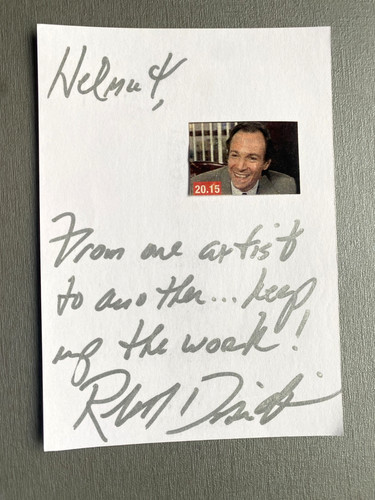 Helmut,
20.15
From one artist
to another... keep
up the work!